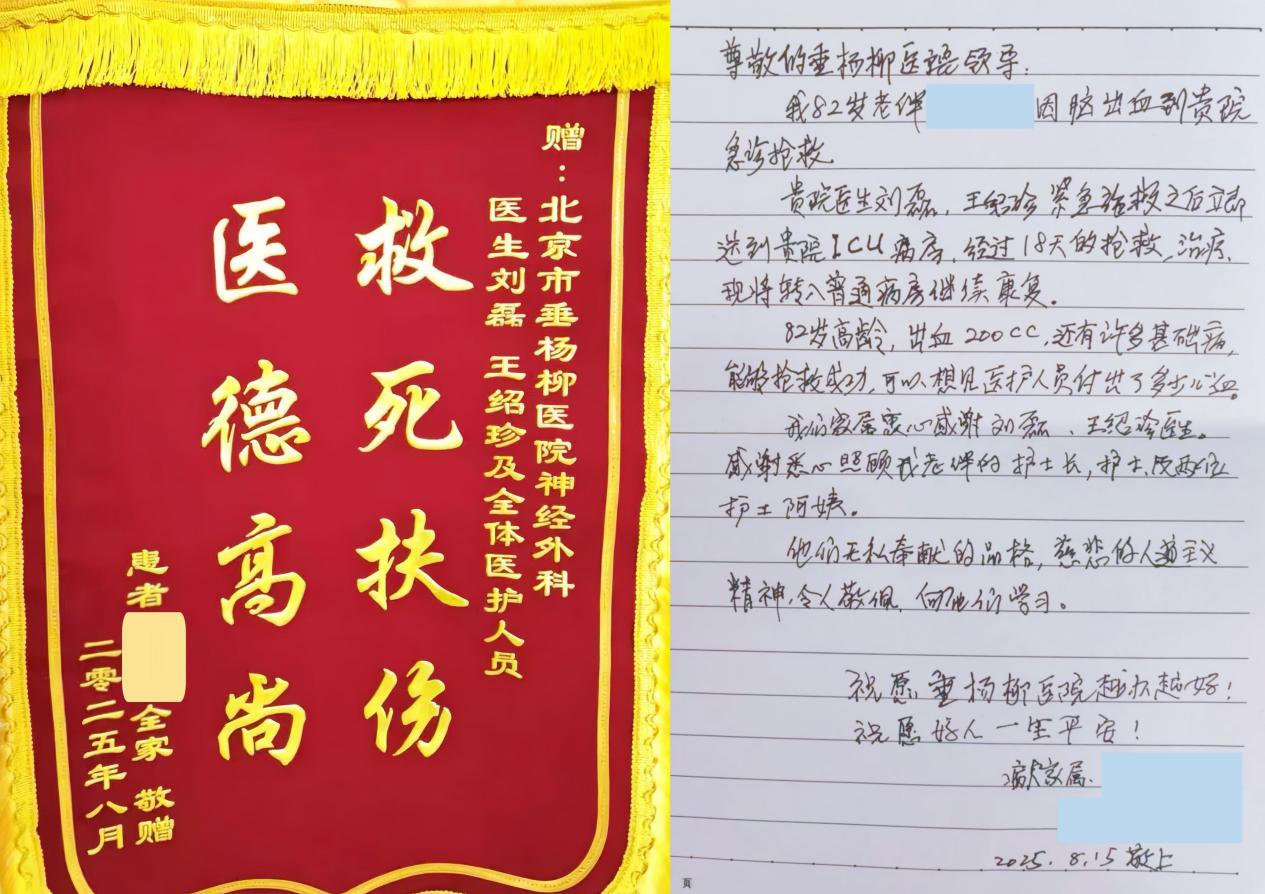 赠：北京市垂杨柳医院神经外科
医生刘磊 王绍珍及全体医护人员
救死扶伤
医德高尚
患者 全家 敬赠
二零二五年八月
尊敬的垂杨柳医院领导：
我82岁老伴 因脑出血到贵院
急诊抢救
贵院医生刘磊、王绍珍紧急施救之后立即
送到贵院ICU病房，经过18天的抢救、治疗，
现将转入普通病房继续康复。
82岁高龄，出血200CC，还有许多基础病，
能够抢救成功，可以想见医护人员付出了多少心血。
我们家属衷心感谢刘磊、王绍珍医生。
感谢悉心照顾我老伴的护士长，护士及两位
护工阿姨。
他们无私奉献的品格，慈悲的人道主义
精神，令人敬佩，向他们学习。
祝愿垂杨柳医院越办越好！
祝愿好人一生平安！
家属
2025.8.15 敬上
頁